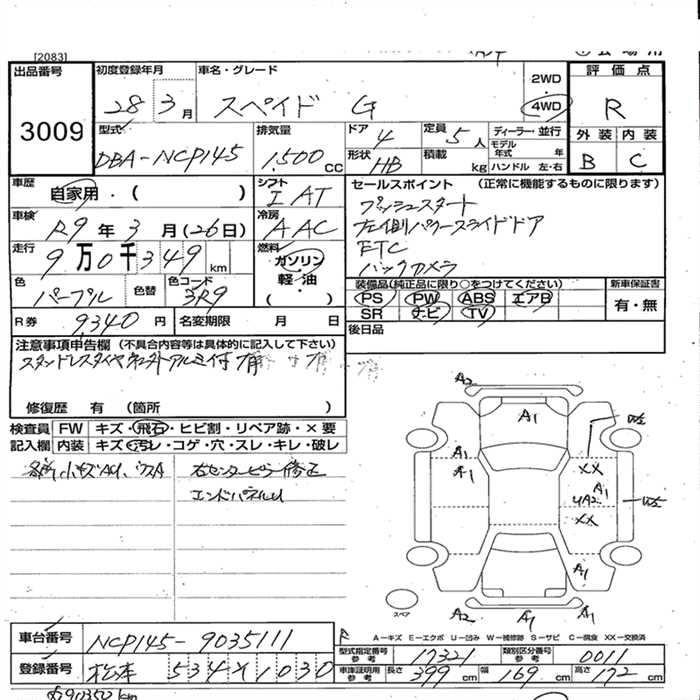 [2083]
出品番号
3009
初度登録年月
28年 3月
車名・グレード
スペイド G
2WD
4WD
評価点
R
外装 内装
B C
型式
DBA-NCP145
排気量
1,500cc
ドア 4
形状 HB
定員 5人
積載 kg
ディーラー・並行
モデル年式 年
ハンドル 左・右
車歴
自家用・( )
シフト
I AT
車検
R9年3月(26日)
冷房
AAC
走行
9万0千349km
燃料
ガソリン
軽・油
( )
色
パープル
色替
色コード
3R9
R券
9,340円
名変期限 月 日
セールスポイント (正常に機能するものに限ります)
プッシュスタート
左側パワースライドドア
ETC
バックカメラ
装備品(純正品に限り○をつけてください)
PS PW ABS エアB
SR ナビ TV
新車保証書
有・無
後日品
注意事項申告欄 (不具合内容等は具体的に記入して下さい)
修復歴 有 (箇所 )
検査員記入欄
FW キズ・飛石・ヒビ割・リペア跡・×要
内装 キズ・汚レ・コゲ・穴・スレ・キレ・破レ
各所小キズA1、
右センターピラー修正
エンドパネルU
A2
A1
A1
A1
XX
A1
XX
A1
A2 A1 A1
スペア
R
A-キズ E-エクボ U-凹み W-補修跡 S-サビ C-腐食 XX-交換済
車台番号
NCP145-9035111
登録番号
松本 534 X 1030
型式指定番号 参考 17321
類別区分番号 参考 0011
車庫証明用 参考 長さ 399cm 幅 169cm 高さ 172cm